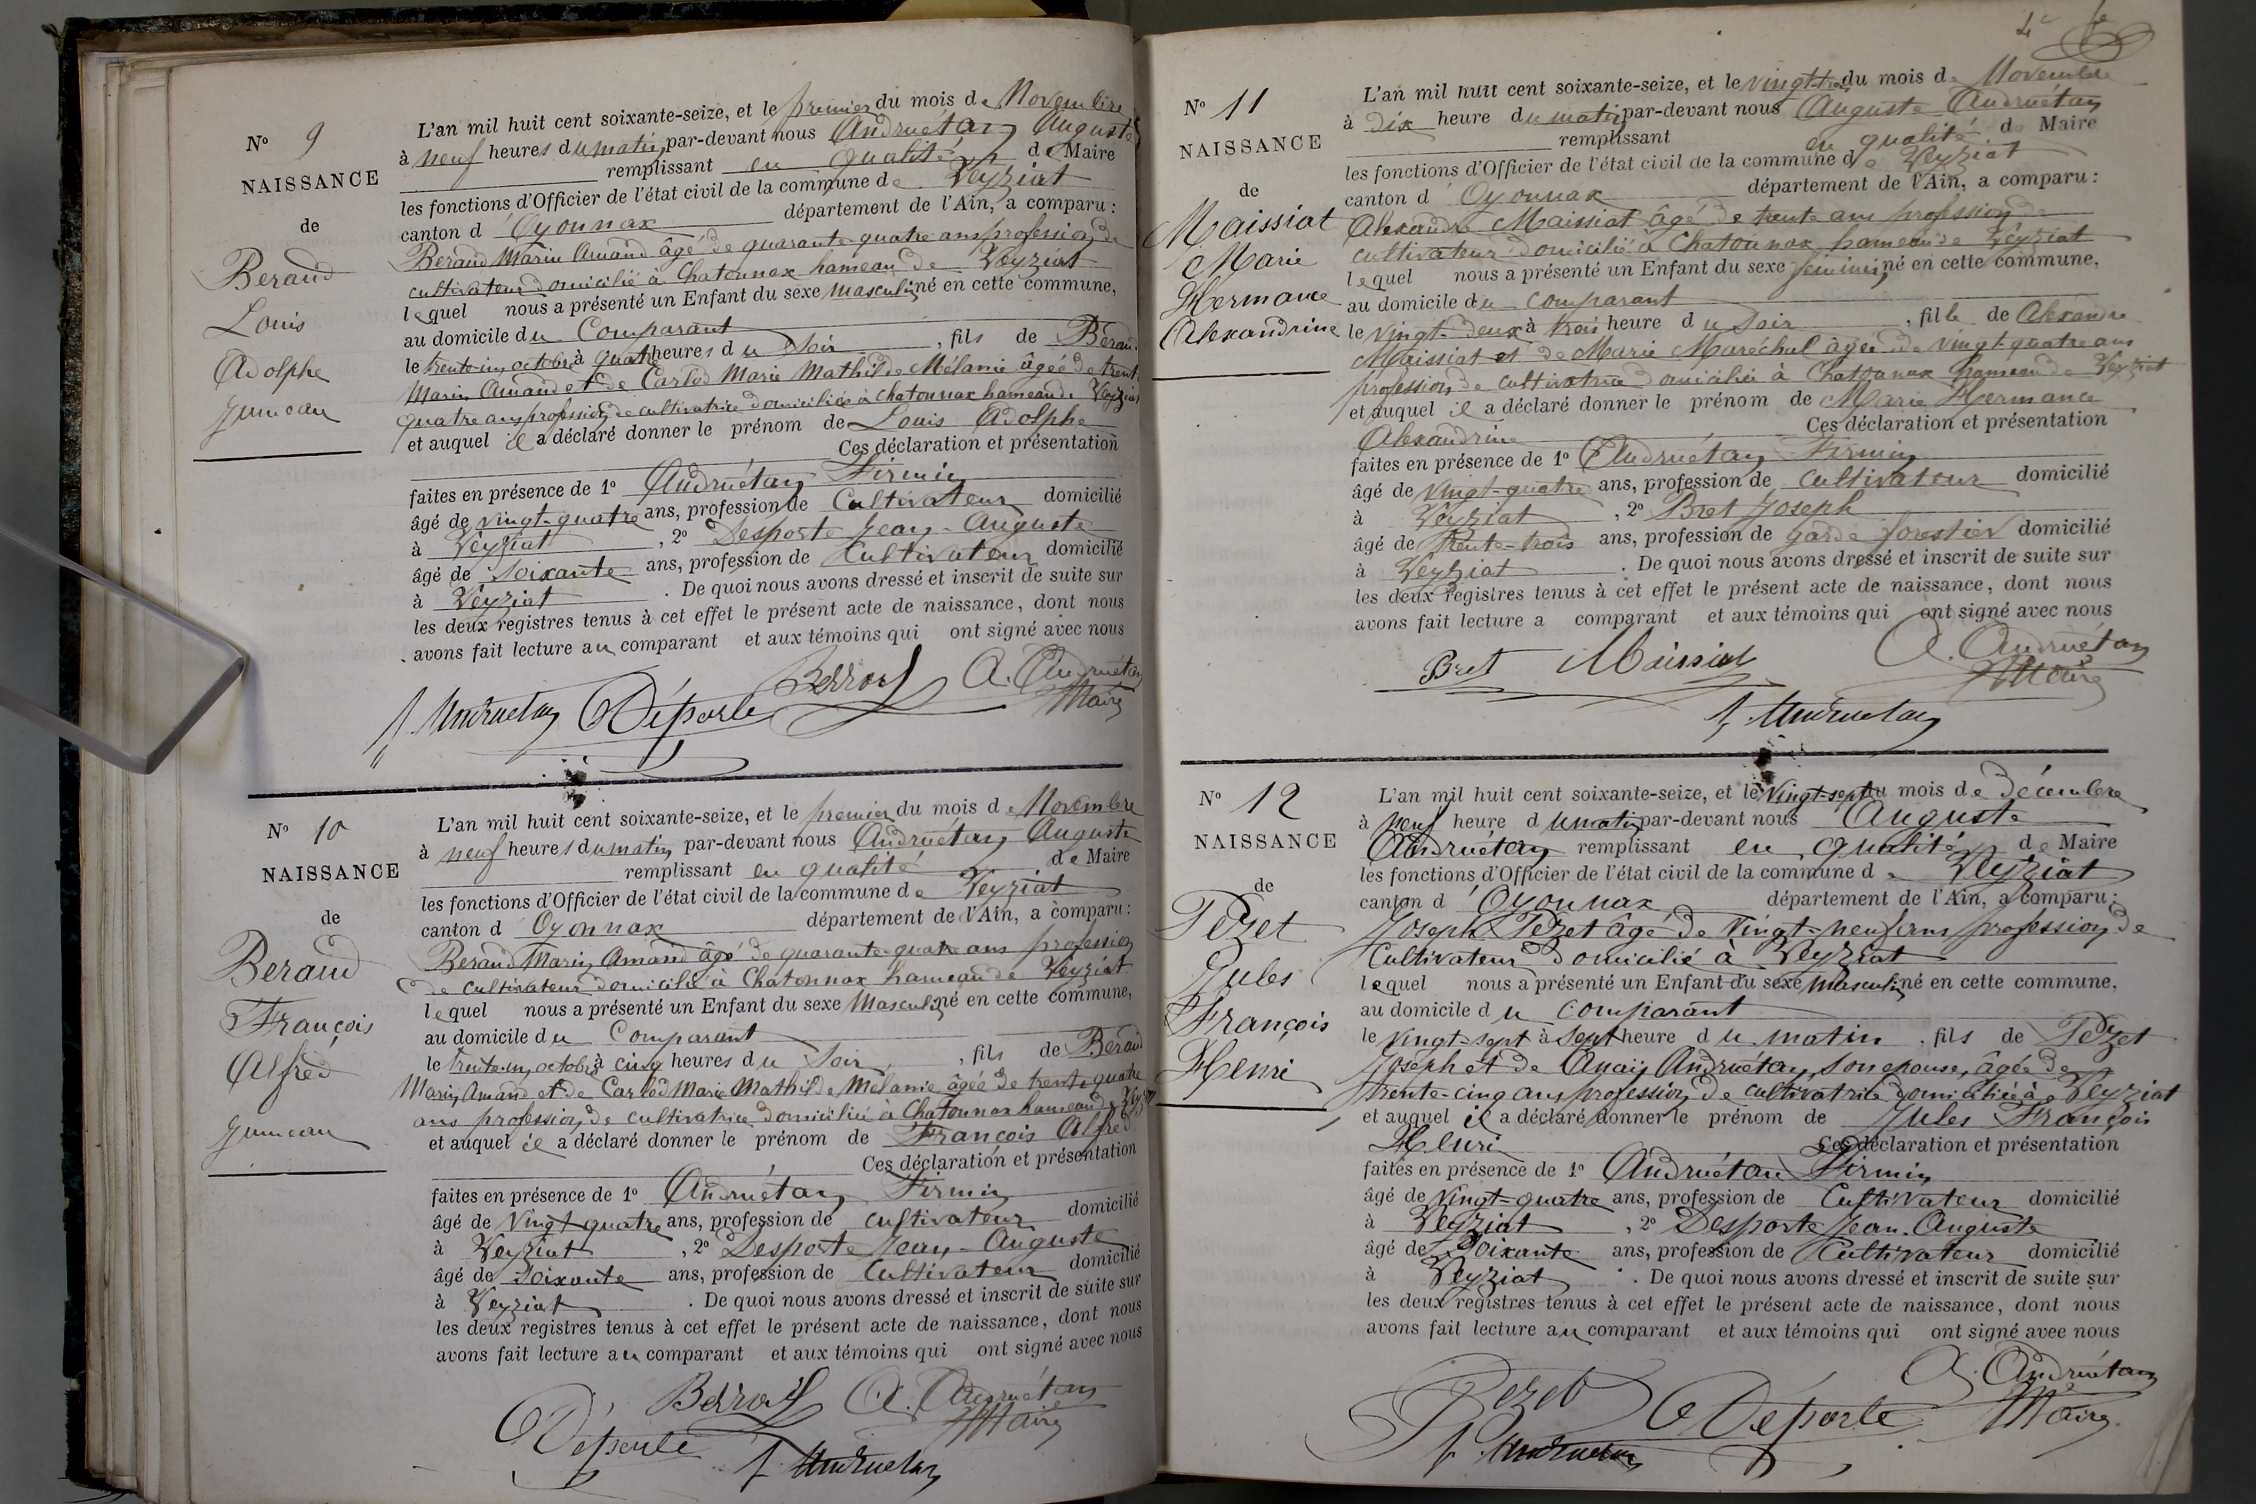 Nº 9
NAISSANCE
de
Beraud
Louis
Adolphe
Jumeau
L'an mil huit cent soixante-seize, et le premier du mois de Novembre
à neuf heures du matin par-devant nous Andruétan Auguste
remplissant en qualité de Maire
les fonctions d'Officier de l'état civil de la commune de Veyziat
canton d'Oyonnax département de l'Ain, a comparu :
Beraud Marin Amand âgé de quarante-quatre ans profession de
cultivateur domicilié à Chatonnax hameau de Veyziat
lequel nous a présenté un Enfant du sexe masculin né en cette commune,
au domicile du Comparant
le trente-un octobre à quatre heures du Soir , fils de Béraud
Marin Amand et de Carlod Marie Mathilde Mélanie âgée de trente
quatre ans profession de cultivatrice domiciliée à chatonnax hameau de Veyziat
et auquel il a déclaré donner le prénom de Louis Adolphe
Ces déclaration et présentation
faites en présence de 1º Andruétan Firmin
âgé de vingt-quatre ans, profession de Cultivateur domicilié
à Veyziat , 2º Desporte Jean-Auguste
âgé de Soixante ans, profession de Cultivateur domicilié
à Veyziat . De quoi nous avons dressé et inscrit de suite sur
les deux registres tenus à cet effet le présent acte de naissance, dont nous
avons fait lecture au comparant et aux témoins qui ont signé avec nous
Berrod A. Andruétan
f. Andruetan Déporte Maire
Nº 10
NAISSANCE
de
Beraud
François
Alfred
Jumeau
L'an mil huit cent soixante-seize, et le premier du mois de Novembre
à neuf heures du matin par-devant nous Andruétan Auguste
remplissant en qualité de Maire
les fonctions d'Officier de l'état civil de la commune de Veyziat
canton d'Oyonnax département de l'Ain, a comparu :
Beraud Marin Amand âgé de quarante-quatre ans profession
de cultivateur domicilié à Chatonnax hameau de Veyziat
lequel nous a présenté un Enfant du sexe Masculin né en cette commune,
au domicile du Comparant
le trente-un octobre à cinq heures du Soir , fils de Béraud
Marin Amand et de Carlod Marie Mathilde Mélanie âgée de trente-quatre
ans profession de cultivatrice domiciliée à Chatonnax hameau de Veyziat
et auquel il a déclaré donner le prénom de François Alfred
Ces déclaration et présentation
faites en présence de 1º Andruétan Firmin
âgé de Vingt quatre ans, profession de cultivateur domicilié
à Veyziat , 2º Desporte Jean-Auguste
âgé de Soixante ans, profession de Cultivateur domicilié
à Veyziat . De quoi nous avons dressé et inscrit de suite sur
les deux registres tenus à cet effet le présent acte de naissance, dont nous
avons fait lecture au comparant et aux témoins qui ont signé avec nous
Berrod A. Andruétan
Déporte Maire
f. Andruetan
Nº 11
NAISSANCE
de
Maissiat
Marie
Hermance
Alexandrine
L'an mil huit cent soixante-seize, et le vingt-trois du mois de Novembre
à dix heure du matin par-devant nous Auguste Andruétan
remplissant en qualité de Maire
les fonctions d'Officier de l'état civil de la commune de Veyziat
canton d'Oyonnax département de l'Ain, a comparu :
Alexandre Maissiat âgé de trente ans profession de
cultivateur domicilié à Chatonnax hameau de Veyziat
lequel nous a présenté un Enfant du sexe féminin né en cette commune,
au domicile du comparant
le vingt-deux à trois heure du Soir , fille de Alexandre
Maissiat et de Marie Maréchal âgée de vingt-quatre ans
profession de cultivatrice domiciliée à Chatonnax hameau de Veyziat
et auquel il a déclaré donner le prénom de Marie Hermance
Alexandrine Ces déclaration et présentation
faites en présence de 1º Andruétan Firmin
âgé de vingt-quatre ans, profession de cultivateur domicilié
à Veyziat , 2º Bret Joseph
âgé de Trente-trois ans, profession de garde forestier domicilié
à Veyziat . De quoi nous avons dressé et inscrit de suite sur
les deux registres tenus à cet effet le présent acte de naissance, dont nous
avons fait lecture a comparant et aux témoins qui ont signé avec nous
Bret Maissiat A. Andruétan
Maire
f. Andruetan
Nº 12
NAISSANCE
de
Pezet
Jules
François
Henri
L'an mil huit cent soixante-seize, et le Vingt-sept du mois de Décembre
à neuf heure du matin par-devant nous Auguste
Andruétan remplissant en qualité de Maire
les fonctions d'Officier de l'état civil de la commune de Veyziat
canton d'Oyonnax département de l'Ain, a comparu :
Joseph Pezet âgé de Vingt-neuf ans profession de
Cultivateur domicilié à Veyziat
lequel nous a présenté un Enfant du sexe masculin né en cette commune,
au domicile du comparant
le vingt-sept à Sept heure du matin , fils de Pezet
Joseph et de Anaïs Andruétan, son épouse, âgée de
trente-cinq ans profession de cultivatrice domiciliée à Veyziat
et auquel il a déclaré donner le prénom de Jules François
Henri Ces déclaration et présentation
faites en présence de 1º Andruétan Firmin
âgé de Vingt-quatre ans, profession de Cultivateur domicilié
à Veyziat , 2º Desporte Jean-Auguste
âgé de Soixante ans, profession de Cultivateur domicilié
à Veyziat . De quoi nous avons dressé et inscrit de suite sur
les deux registres tenus à cet effet le présent acte de naissance, dont nous
avons fait lecture au comparant et aux témoins qui ont signé avec nous
Pezet Déporte A. Andruétan
f. Andruetan Maire